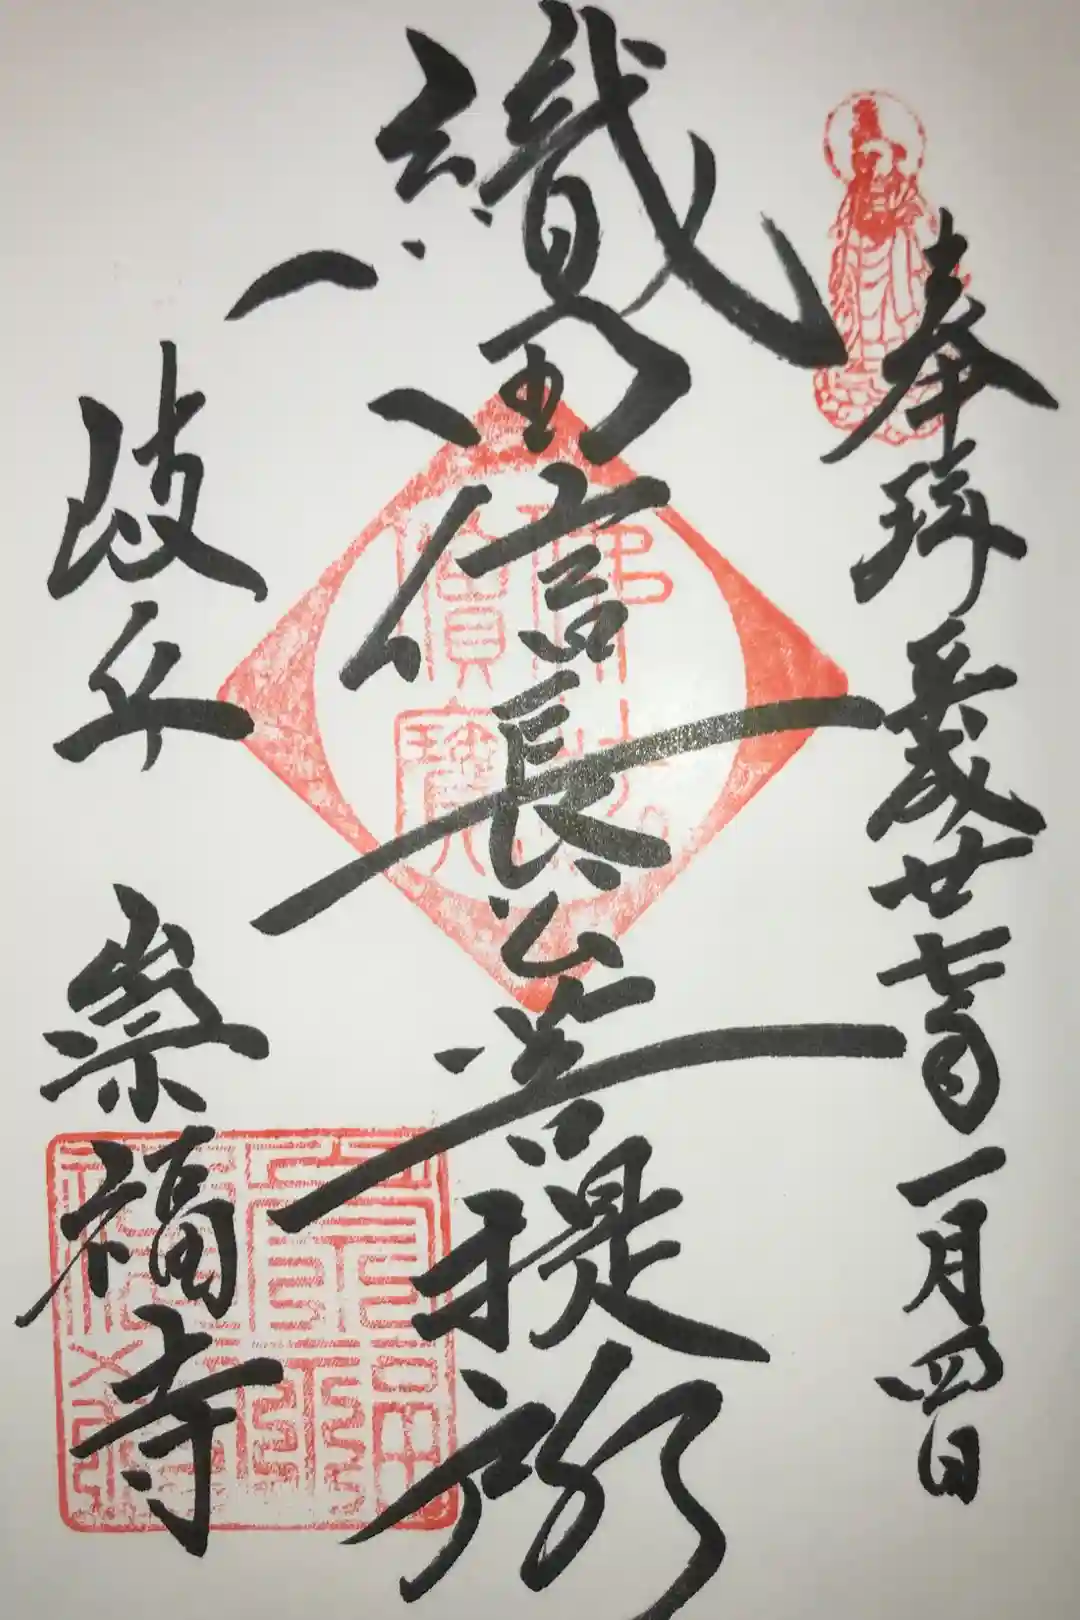 奉拝 平成廿七年一月四日
織田信長公菩提所
岐阜 崇福寺
佛法僧寳